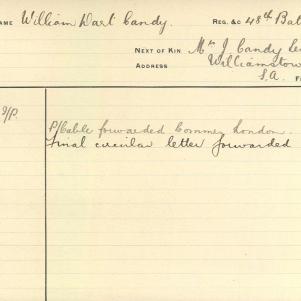 NAME William Dart Candy. REG. &c 48th Bat
NEXT OF KIN Mr J. Candy
ADDRESS Williamstow
S.A.
P/Cable forwarded Commn London.
Final circular letter forwarded